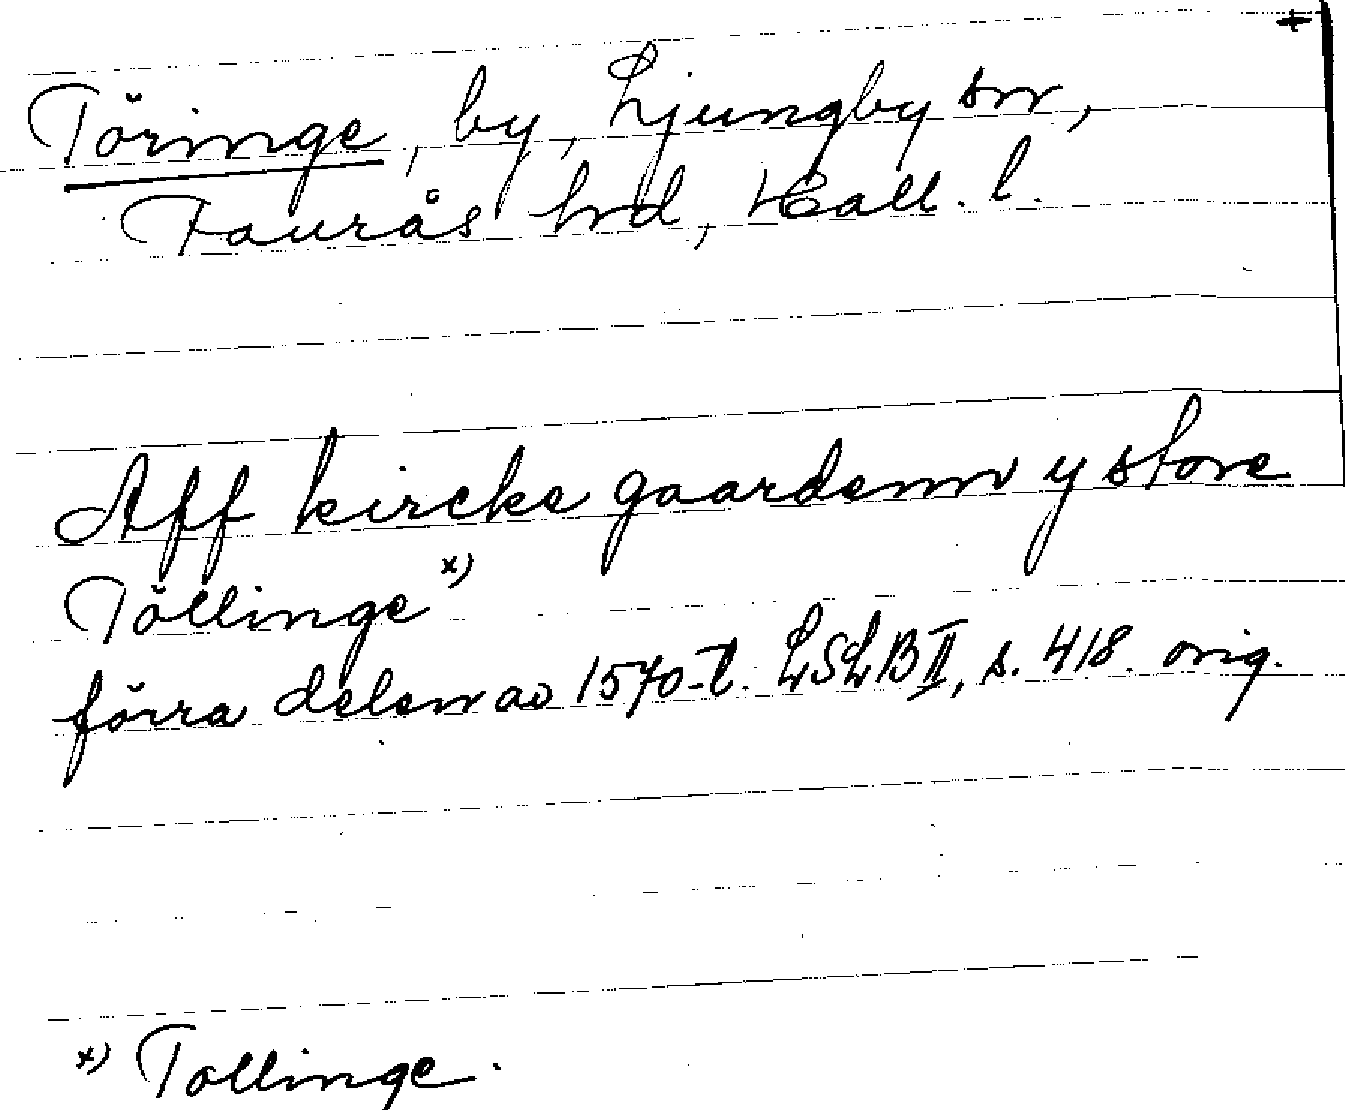 Töringe, by, Ljungby sn,
Faurås hrd, Hall. l.
Aff kircke gaardenn y store
Töllinge x)
förra delen av 1570-t. LSLB II, s. 418. orig.
x) Tollinge.